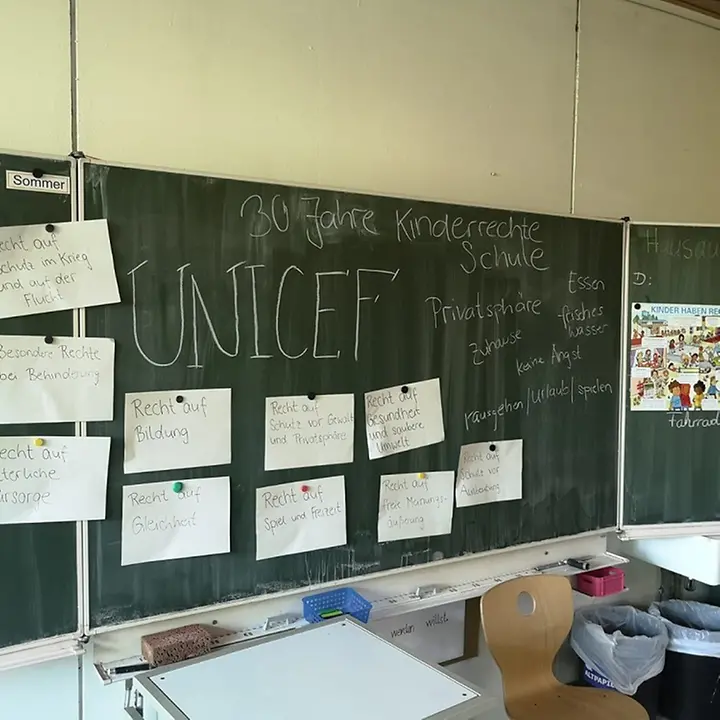 Sommer
30 Jahre Kinderrechte
Schule
UNICEF
Privatsphäre
Zuhause
Essen
-frisches
Wasser
keine Angst
rausgehen/Urlaub/spielen
echt auf
chutz im Krieg
und auf der
Flucht
Besondere Rechte
bei Behinderung
echt auf
terliche
ürsorge
Recht auf
Bildung
Recht auf
Schutz vor Gewalt
und Privatsphäre
Recht auf
Gesundheit
und saubere
Umwelt
Recht auf
Gleichheit
Recht auf
Spiel und Freizeit
Recht auf
freie Meinungs-
äußerung
Recht auf
Schutz vor
Ausbeutung
Hausau
D:
KINDER HABEN RE
Fahrrad
werden willst.
ALTPAPI